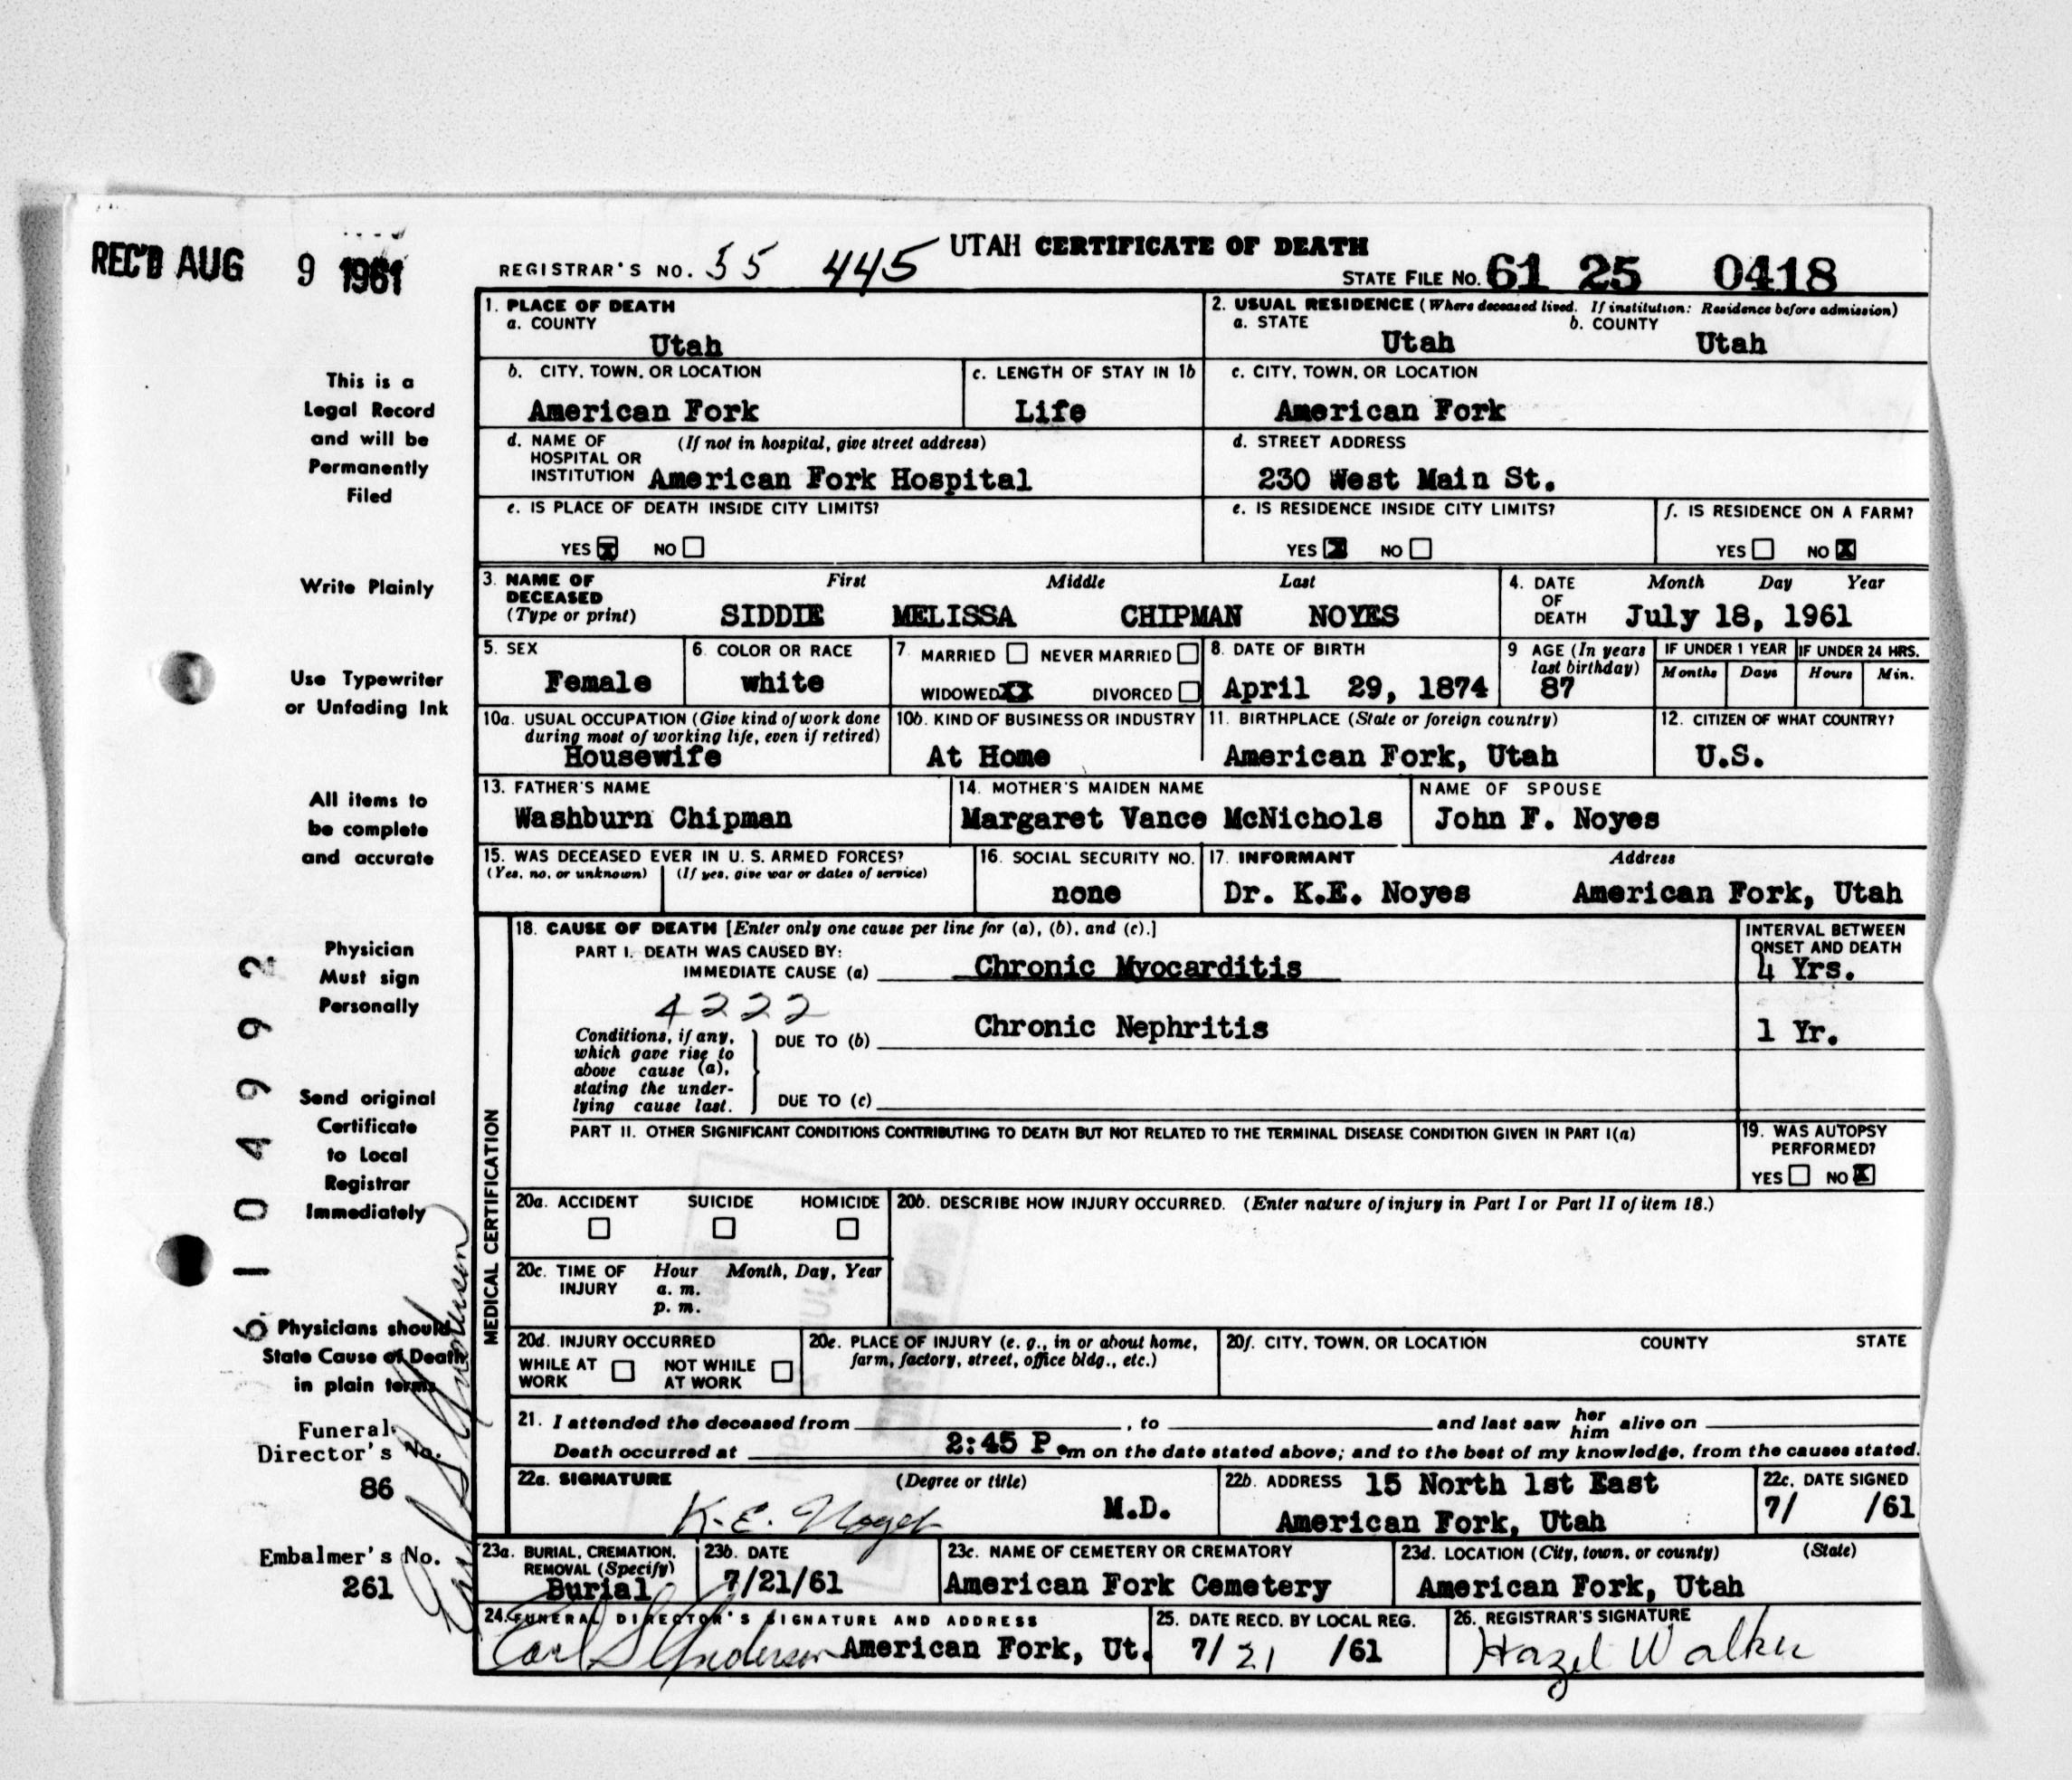 REC'D AUG 9 1961
UTAH CERTIFICATE OF DEATH
REGISTRAR'S NO. 55 445
STATE FILE NO. 61 25 0418
This is a
Legal Record
and will be
Permanently
Filed
Write Plainly
Use Typewriter
or Unfading Ink
All items to
be complete
and accurate
Physician
Must sign
Personally
Send original
Certificate
to Local
Registrar
Immediately
Physicians should
State Cause of Death
in plain terms
Funeral
Director's No.
86
Embalmer's No.
261
6104992
Earl S Anderson
1. PLACE OF DEATH
a. COUNTY
Utah
2. USUAL RESIDENCE (Where deceased lived. If institution: Residence before admission)
a. STATE b. COUNTY
Utah Utah
b. CITY, TOWN, OR LOCATION
American Fork
c. LENGTH OF STAY IN 1b
Life
c. CITY, TOWN, OR LOCATION
American Fork
d. NAME OF (If not in hospital, give street address)
HOSPITAL OR
INSTITUTION American Fork Hospital
d. STREET ADDRESS
230 West Main St.
e. IS PLACE OF DEATH INSIDE CITY LIMITS?
YES X NO
e. IS RESIDENCE INSIDE CITY LIMITS?
YES X NO
f. IS RESIDENCE ON A FARM?
YES NO X
3. NAME OF First Middle Last
DECEASED
(Type or print) SIDDIE MELISSA CHIPMAN NOYES
4. DATE Month Day Year
OF
DEATH July 18, 1961
5. SEX
Female
6. COLOR OR RACE
white
7. MARRIED NEVER MARRIED
WIDOWED XX DIVORCED
8. DATE OF BIRTH
April 29, 1874
9 AGE (In years
last birthday)
87
IF UNDER 1 YEAR IF UNDER 24 HRS.
Months Days Hours Min.
10a. USUAL OCCUPATION (Give kind of work done
during most of working life, even if retired)
Housewife
10b. KIND OF BUSINESS OR INDUSTRY
At Home
11. BIRTHPLACE (State or foreign country)
American Fork, Utah
12. CITIZEN OF WHAT COUNTRY?
U.S.
13. FATHER'S NAME
Washburn Chipman
14. MOTHER'S MAIDEN NAME
Margaret Vance McNichols
NAME OF SPOUSE
John F. Noyes
15. WAS DECEASED EVER IN U. S. ARMED FORCES?
(Yes, no, or unknown) (If yes, give war or dates of service)
16. SOCIAL SECURITY NO.
none
17. INFORMANT Address
Dr. K.E. Noyes American Fork, Utah
MEDICAL CERTIFICATION
18. CAUSE OF DEATH [Enter only one cause per line for (a), (b), and (c).]
PART I. DEATH WAS CAUSED BY:
IMMEDIATE CAUSE (a) Chronic Myocarditis
INTERVAL BETWEEN
ONSET AND DEATH
4 Yrs.
4222
Conditions, if any,
which gave rise to
above cause (a),
stating the under-
lying cause last.
DUE TO (b) Chronic Nephritis
1 Yr.
DUE TO (c)
PART II. OTHER SIGNIFICANT CONDITIONS CONTRIBUTING TO DEATH BUT NOT RELATED TO THE TERMINAL DISEASE CONDITION GIVEN IN PART I(a)
19. WAS AUTOPSY
PERFORMED?
YES NO X
20a. ACCIDENT SUICIDE HOMICIDE
20b. DESCRIBE HOW INJURY OCCURRED. (Enter nature of injury in Part I or Part II of item 18.)
20c. TIME OF Hour Month, Day, Year
INJURY a. m.
p. m.
20d. INJURY OCCURRED
WHILE AT NOT WHILE
WORK AT WORK
20e. PLACE OF INJURY (e. g., in or about home,
farm, factory, street, office bldg., etc.)
20f. CITY, TOWN, OR LOCATION COUNTY STATE
21. I attended the deceased from , to and last saw her him alive on
Death occurred at 2:45 P.m on the date stated above; and to the best of my knowledge, from the causes stated.
22a. SIGNATURE (Degree or title)
K. E. Noyes M.D.
22b. ADDRESS 15 North 1st East
American Fork, Utah
22c. DATE SIGNED
7/ /61
23a. BURIAL, CREMATION,
REMOVAL (Specify)
Burial
23b. DATE
7/21/61
23c. NAME OF CEMETERY OR CREMATORY
American Fork Cemetery
23d. LOCATION (City, town, or county) (State)
American Fork, Utah
24. FUNERAL DIRECTOR'S SIGNATURE AND ADDRESS
Earl S Anderson American Fork, Ut.
25. DATE RECD. BY LOCAL REG.
7/21/61
26. REGISTRAR'S SIGNATURE
Hazel Walker